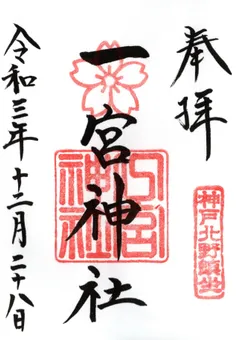 奉拝
神戸北野鎮坐
一宮神社
一宮神社
令和三年十二月二十八日